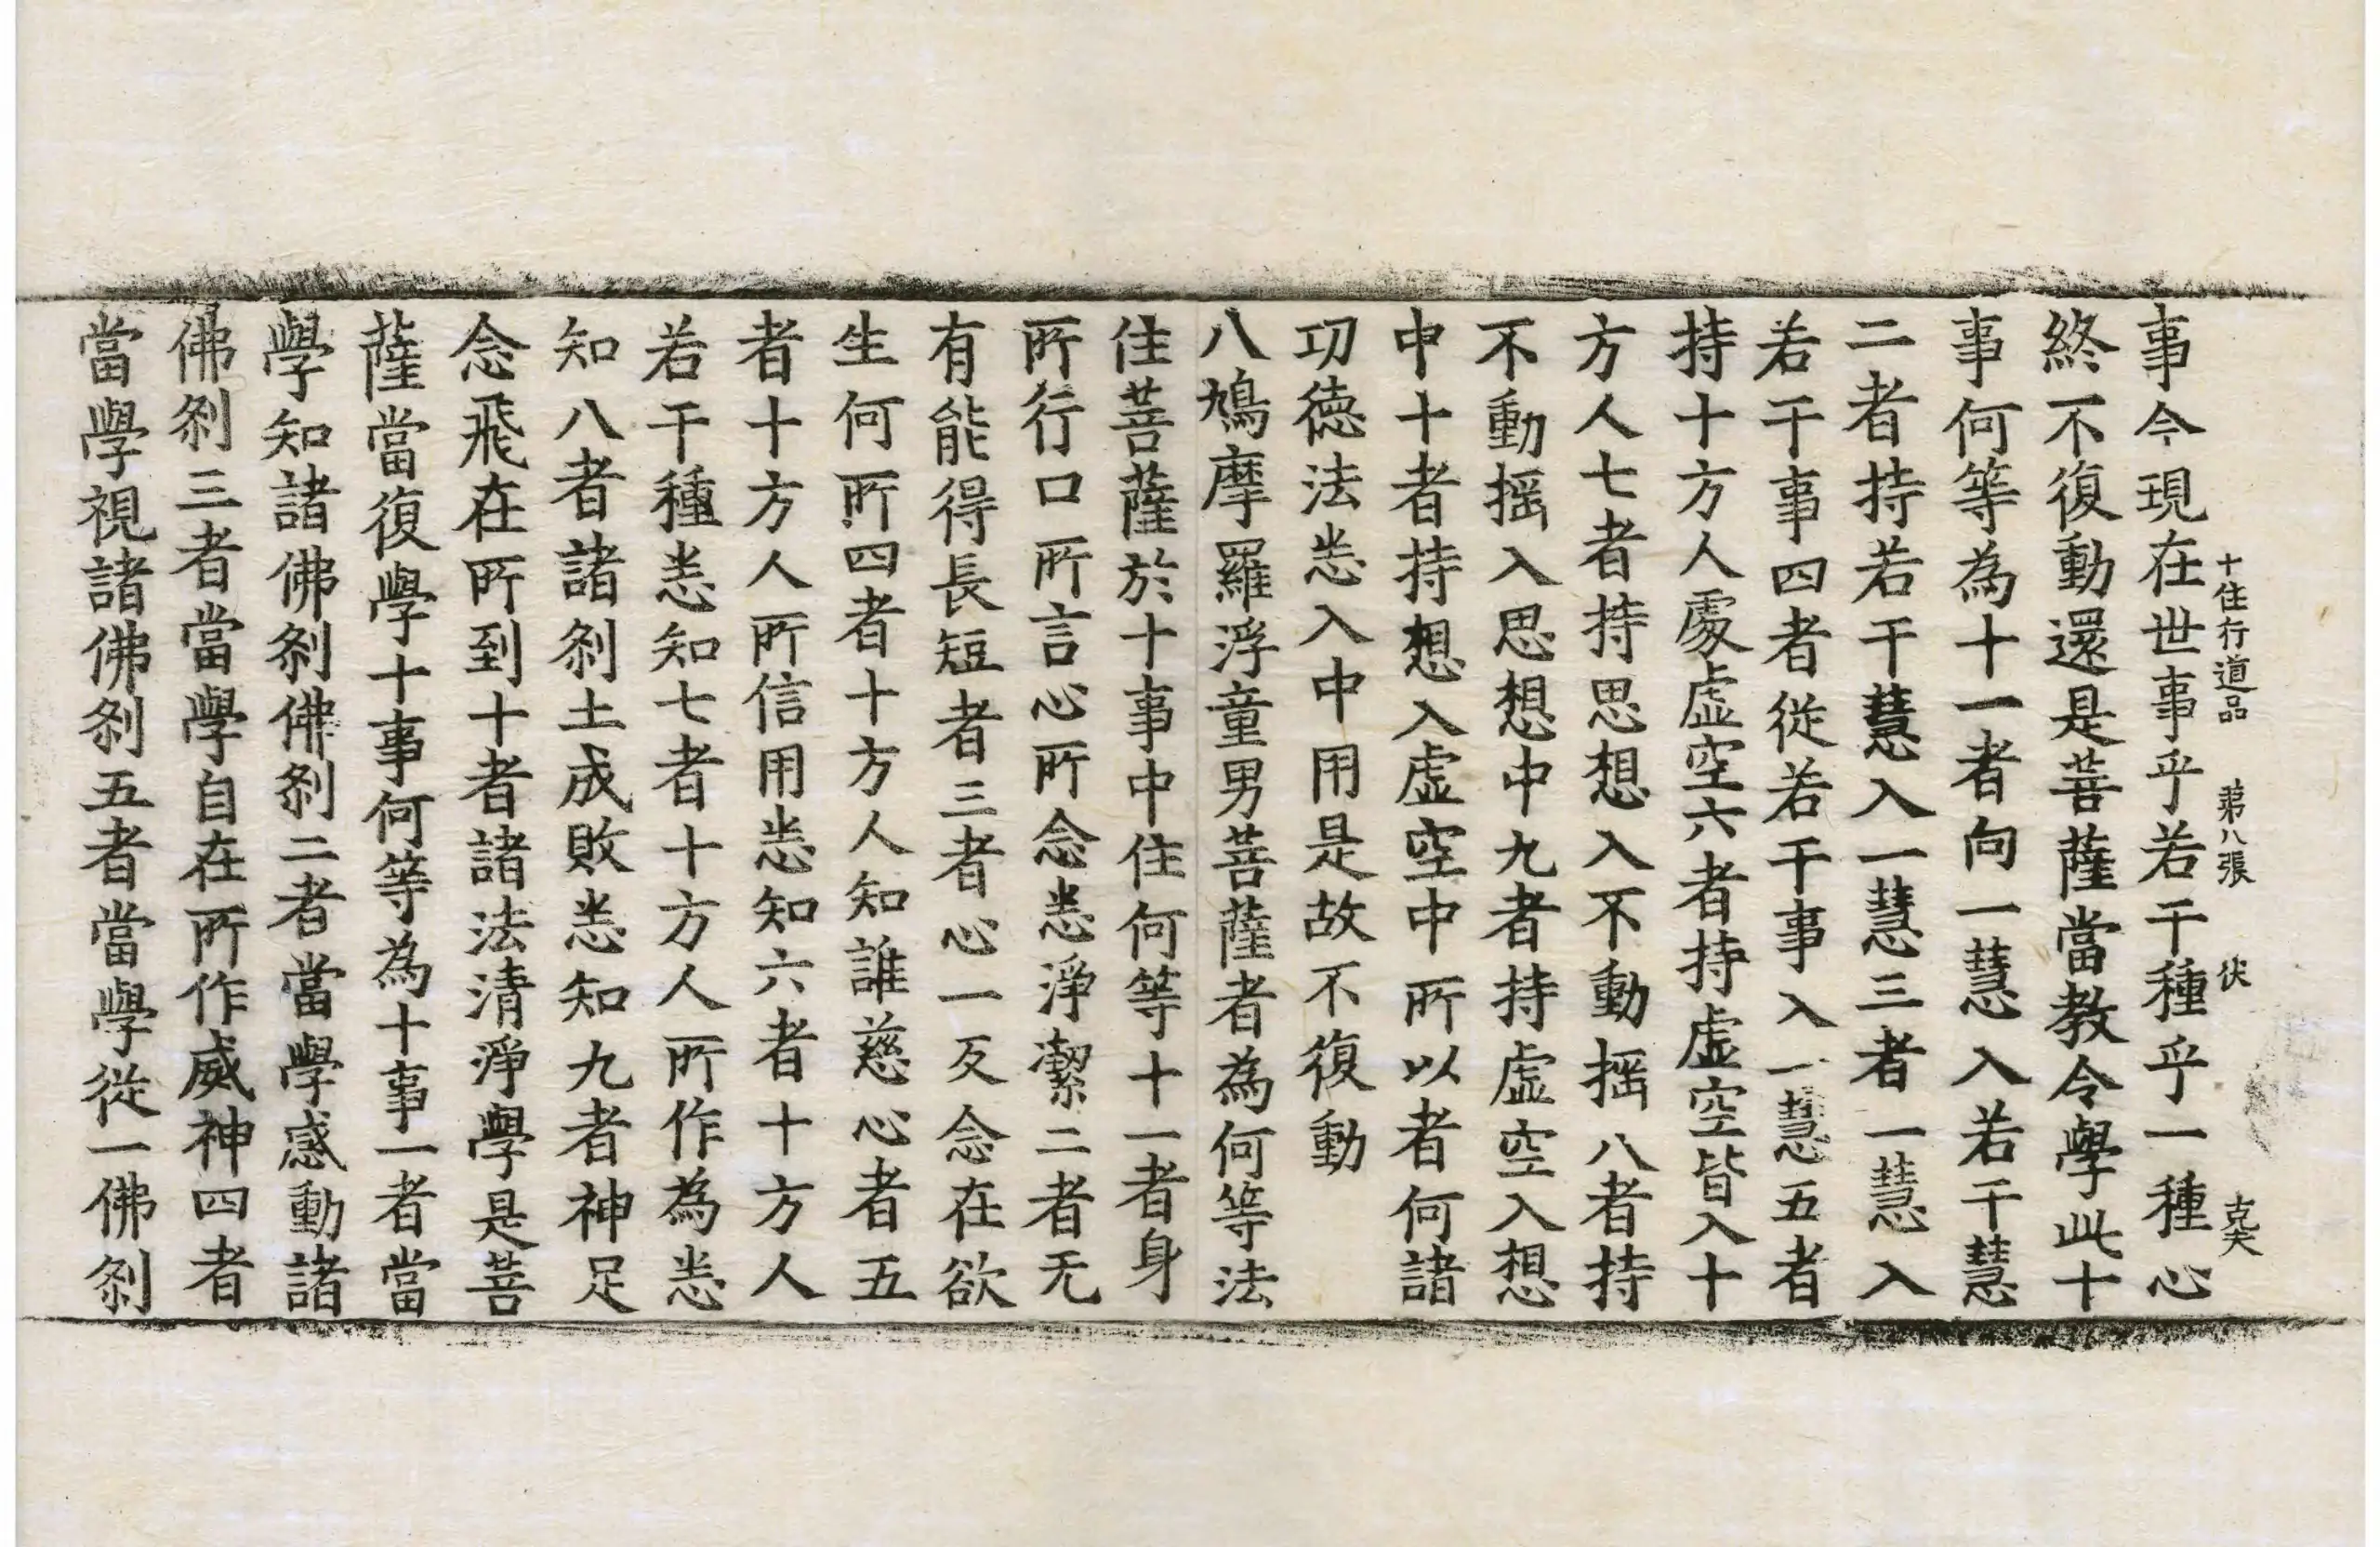 十住行道品 苐八張 伏 克大
事今現在世事乎若干種乎一種心
終不復動還是菩薩當教令學此十
事何等為十一者向一慧入若干慧
二者持若干慧入一慧三者一慧入
若干事四者從若干事入一慧五者
持十方人處虛空六者持虛空皆入十
方人七者持思想入不動揺八者持
不動揺入思想中九者持虛空入想
中十者持想入虛空中所以者何諸
功德法悉入中用是故不復動
八鳩摩羅浮童男菩薩者為何等法
住菩薩於十事中住何等十一者身
所行口所言心所念悉淨潔二者无
有能得長短者三者心一反念在欲
生何所四者十方人知誰慈心者五
者十方人所信用悉知六者十方人
若干種悉知七者十方人所作為悉
知八者諸剎土成敗悉知九者神足
念飛在所到十者諸法清淨學是菩
薩當復學十事何等為十事一者當
學知諸佛剎佛剎二者當學感動諸
佛剎三者當學自在所作威神四者
當學視諸佛剎五者當學從一佛剎